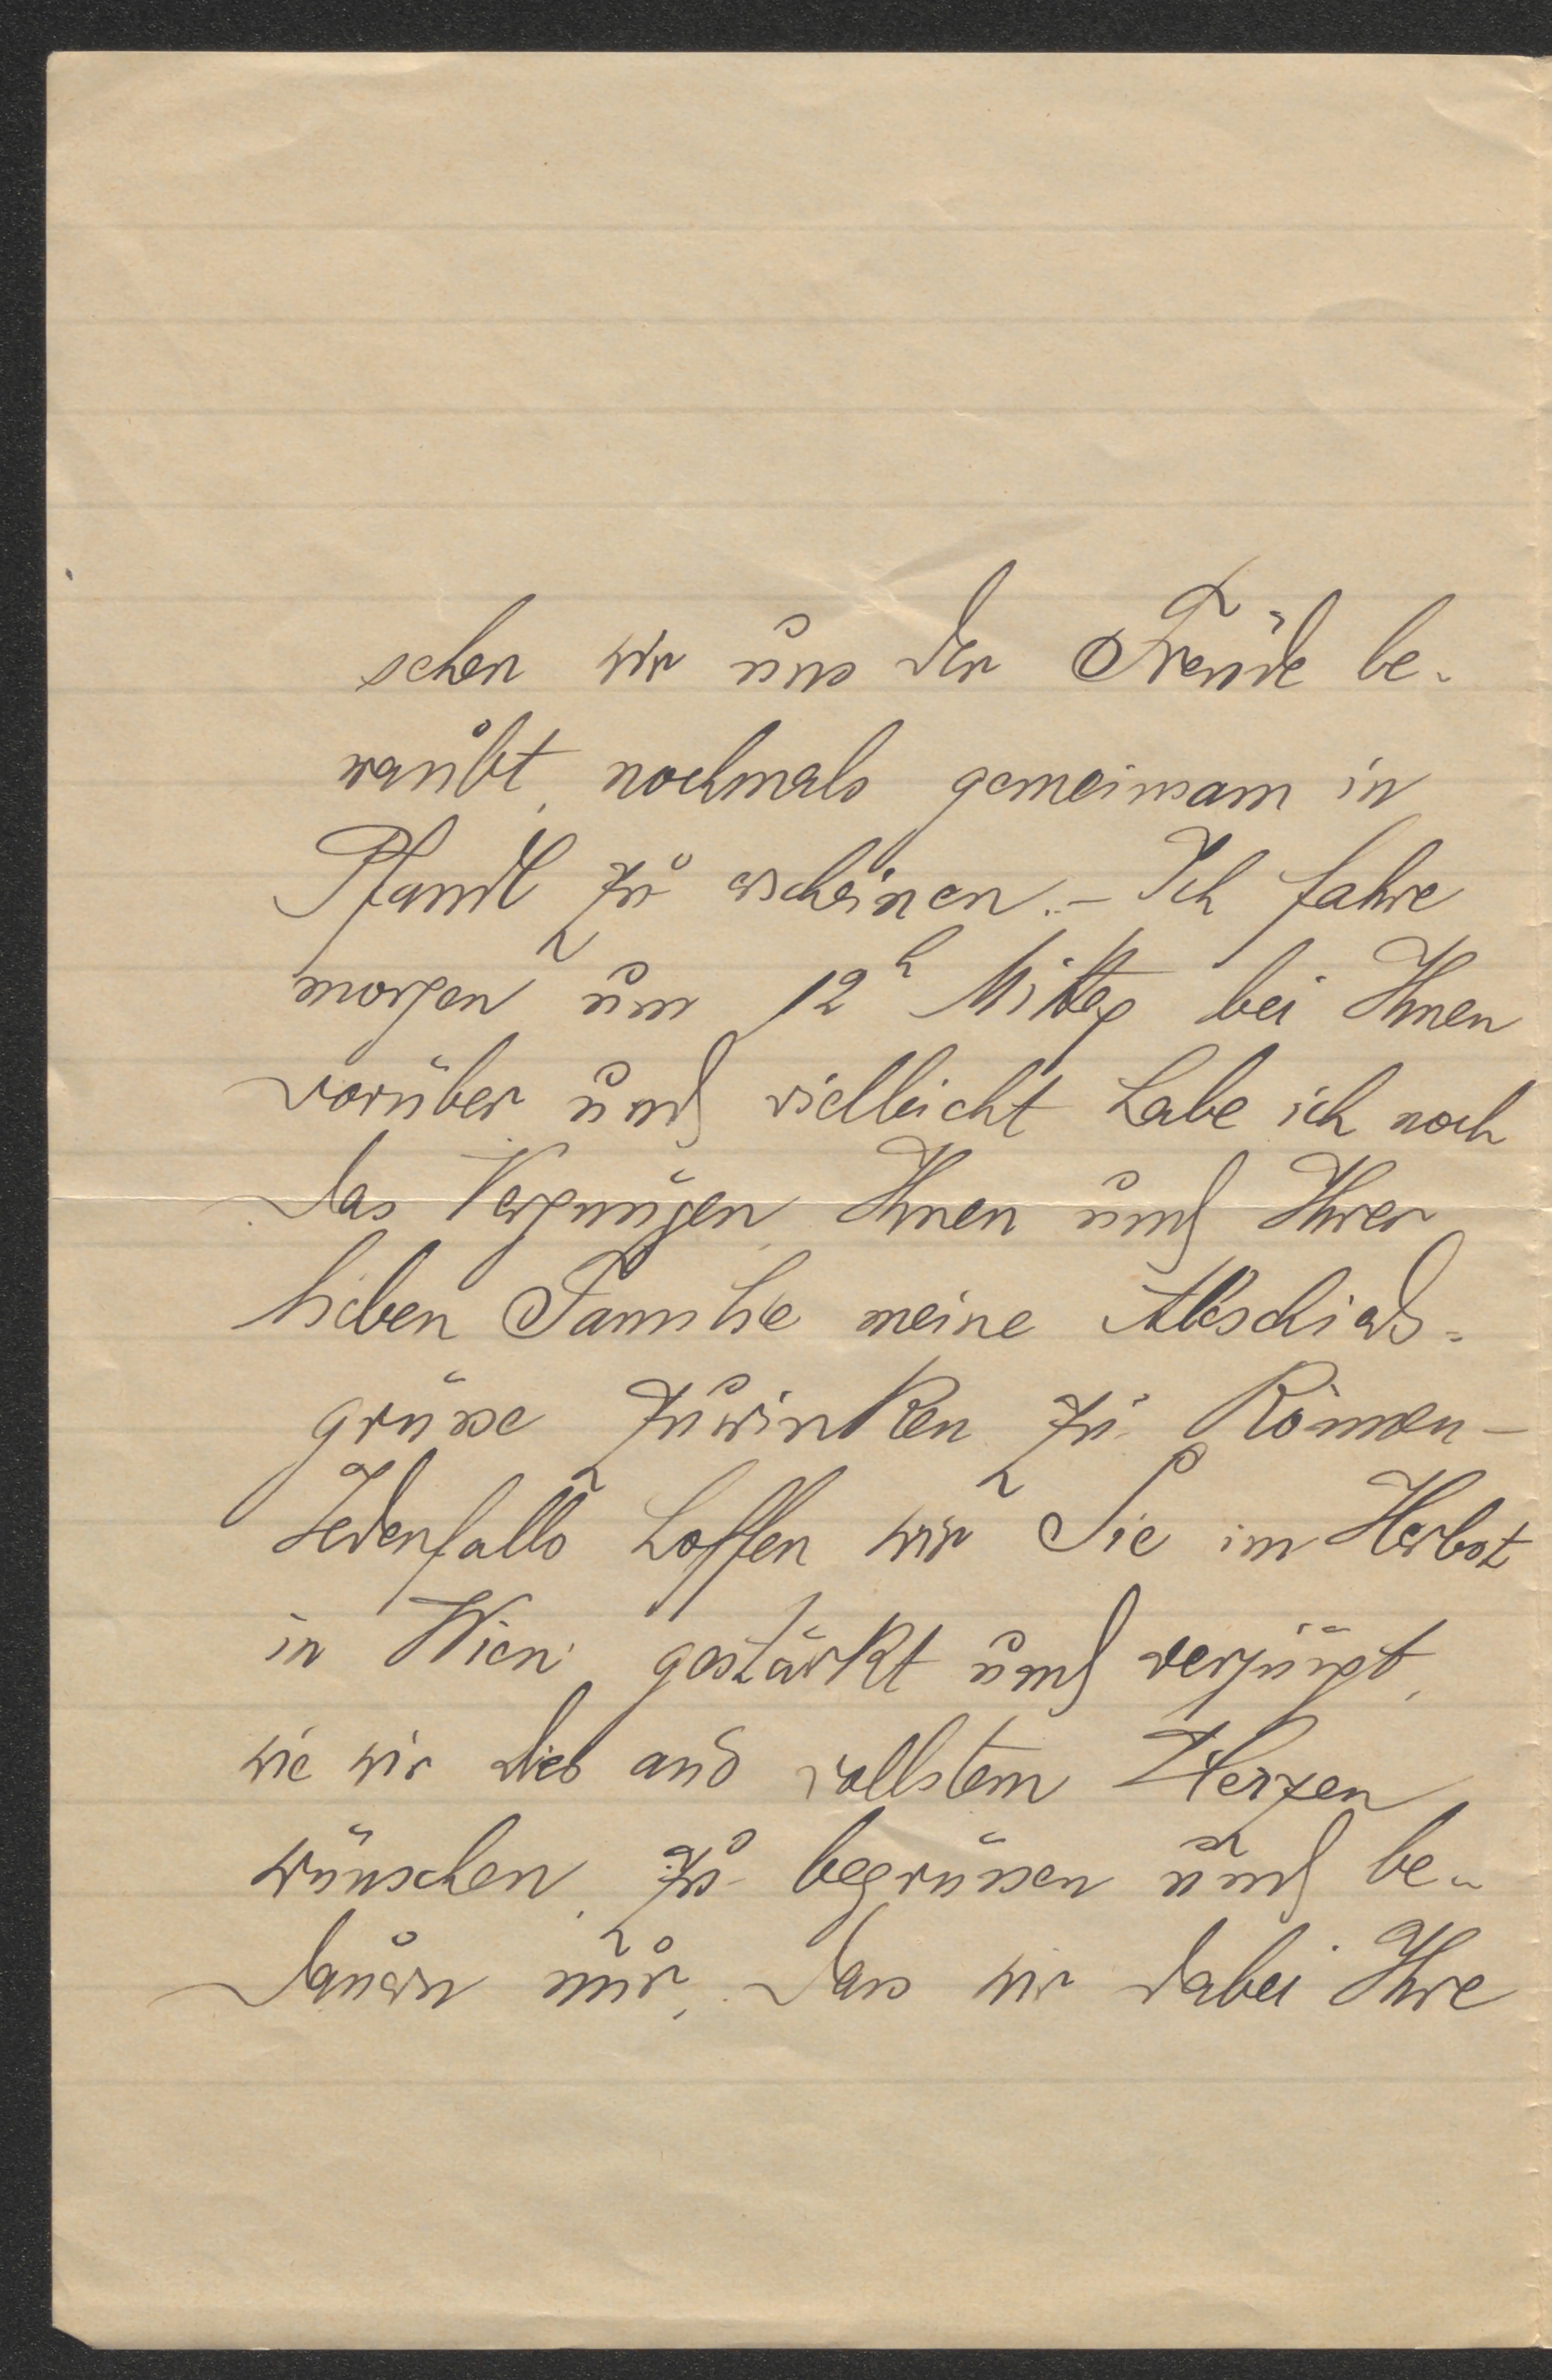 sehen wir uns der Freude be-
raubt, nochmals gemeinsam in
Pfandl zu erscheinen. – Ich fahre
morgen um 12h Mittag bei Ihnen
vorüber und vielleicht habe ich noch
das Vergnügen, Ihnen und Ihrer
lieben Familie meine Abschieds-
grüsse zuwinken zu können –
Jedenfalls hoffen wir Sie im Herbst
in Wien gestärkt und verjüngt,
wie wir dies aus vollstem Herzen
wünschen, zu begrüssen und be-
dauern nur, dass wir dabei Ihre